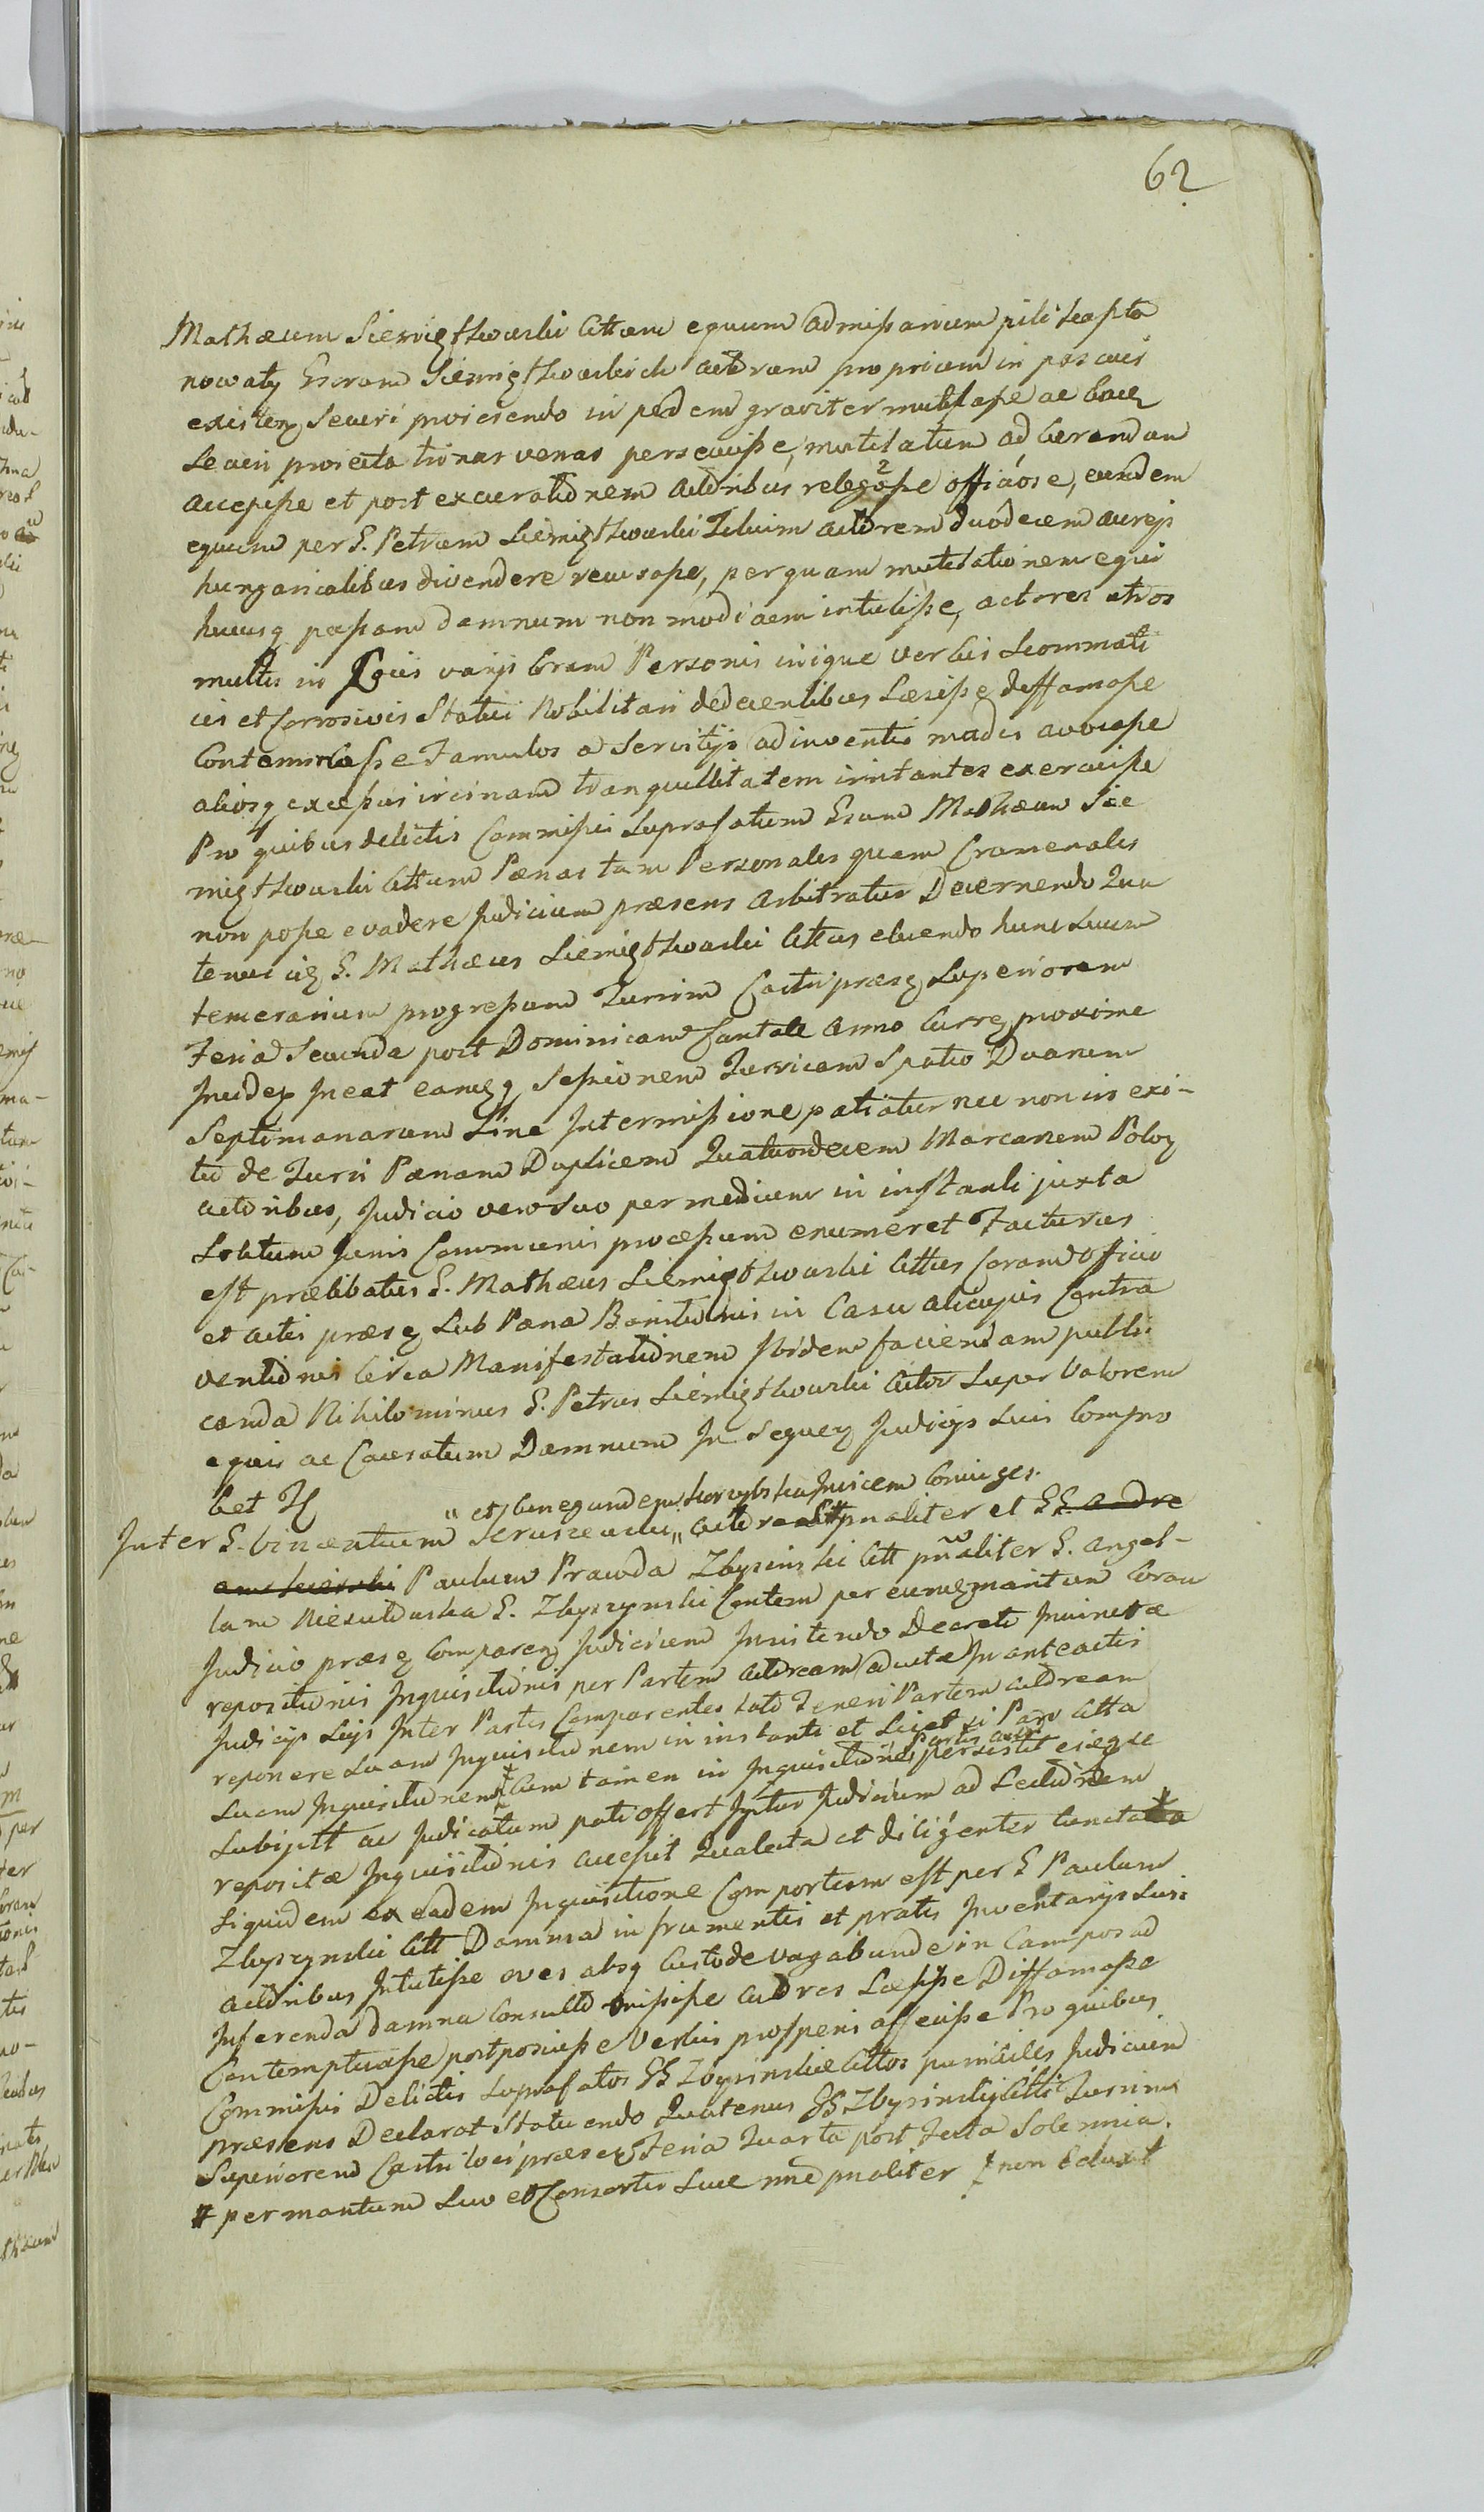 62
Mathæum Siemigtkowski Cittum equum admissarium pili kaszta
nowaty Grum Siemigtkowskich actorum proprium in pascuis
existen securi projiciendo in pedem graviter mutilasse ac hacce
securi projecta trinas venas perscuisse, mutilatum ad curandum
accepisse et post excurationem Actoribus relegasse officiose, eundem
equum per G. Petrum Siemigtkowski Filium actorem duodecem aureis
hungaricalibus divendere recusasse, per quam mutilationem equi
hucusq passam damnum non modicum intulisse, actores utros
multis in Locis varys Coram Personis inique verbis scommati
cis et corrosivis Statui Nobilitari dedecentibus Læsisse deffamasse
Contemtasse Famulos a Servitys adinventis modis avocasse
aliosq excessus vicinam tranquillitatem irritantes exercuisse
Pro quibus delictis Commissis Suprafatum Grum Mathæum Sie
migtkowski Cittum Pænas tam Personales quam Cramenales
non posse evadere Judicium præsens arbitratur Decernendo Qua
tenus idq G. Mathæus Siemigtkowski Cittus eluendo hunc suum
temerarium progressum Turrim Castri præsq Superiorem
Feria Secunda post Dominicam Cantate Anno Curreq proxime
Incidq Ineat eamq Sessionem Turricam Spatio Duarum
Septimanarum Sine Intermissione patiatur nec non in exi-
tu de Turri Pænam Duplicem Quatuordecem Marcarum Poloq
actoribus, Judicio vero suo per medium in instanti juxta
Solitum Juris Communis processum enumeret Facturus
est prælibatus G. Mathæus Siemigtkowski Cittus Coram Officio
et actis præsq Sub Pæna Banitionis in Casu alicujus Contra
ventionis Circa Manifestationem Ibidem faciendam publi
canda Nihilominus G. Petrus Siemigtkowski Actor Super Valorem
equi ac Causatum Damnum In Sequeq Judicys Suis Compro
bet
" et Cunegundem Invicem Coniuges.
Inter G. Vincentium " actorea pnaliter et GG. Andre
Paulum Prawda Zbyszinski Citt pnaliter G. Angel-
lam G. Zbyszynski Contem per eumq maritum Coram
Judicio præsq Compareq Judicium Insistendo Decreti Invinctæ
repositionis Inquisitionis per Partem Actoream aductæ In anteactis
Judicys Suis Inter Partes Comparentes lati Teneri Partem actoream
reponere Suam Inquisitionem in instanti et Licet Pars Citta
Suam Inquisitionem Cum tamen in Inquisitione Partis persistit eiqse
Subijtt ac Judicatum pati offert Igitur Judicium ad Lectionem
repositæ Inquisitionis accessit Qua lecta et diligenter
Siquidem ex eadem Inquisitione Compertum est per G Paulum
Zbyszynski Citt Damna in frumentis et pratis Inventarys Suis
actoribus Intulisse oves absq Custode vagabunde in Campos ad
Inferenda damna Consulto misisse Actores Læsisse Diffamasse
Contemptuasse postposuisse Verbis prosperis affecisse Pro quibus
Commissis Delictis Suprafatos GG Zbyszinskie Cittos punibiles Judicium
præsens Declarat Statuendo Quatenus GG Zbyszinscy Citti Turrim
Superiorem Castri loci præsq Feria Quarta post Festa Solennia.
# per maritum Suo et Consortis Suæ nne pnaliter ‡ non Eduxit